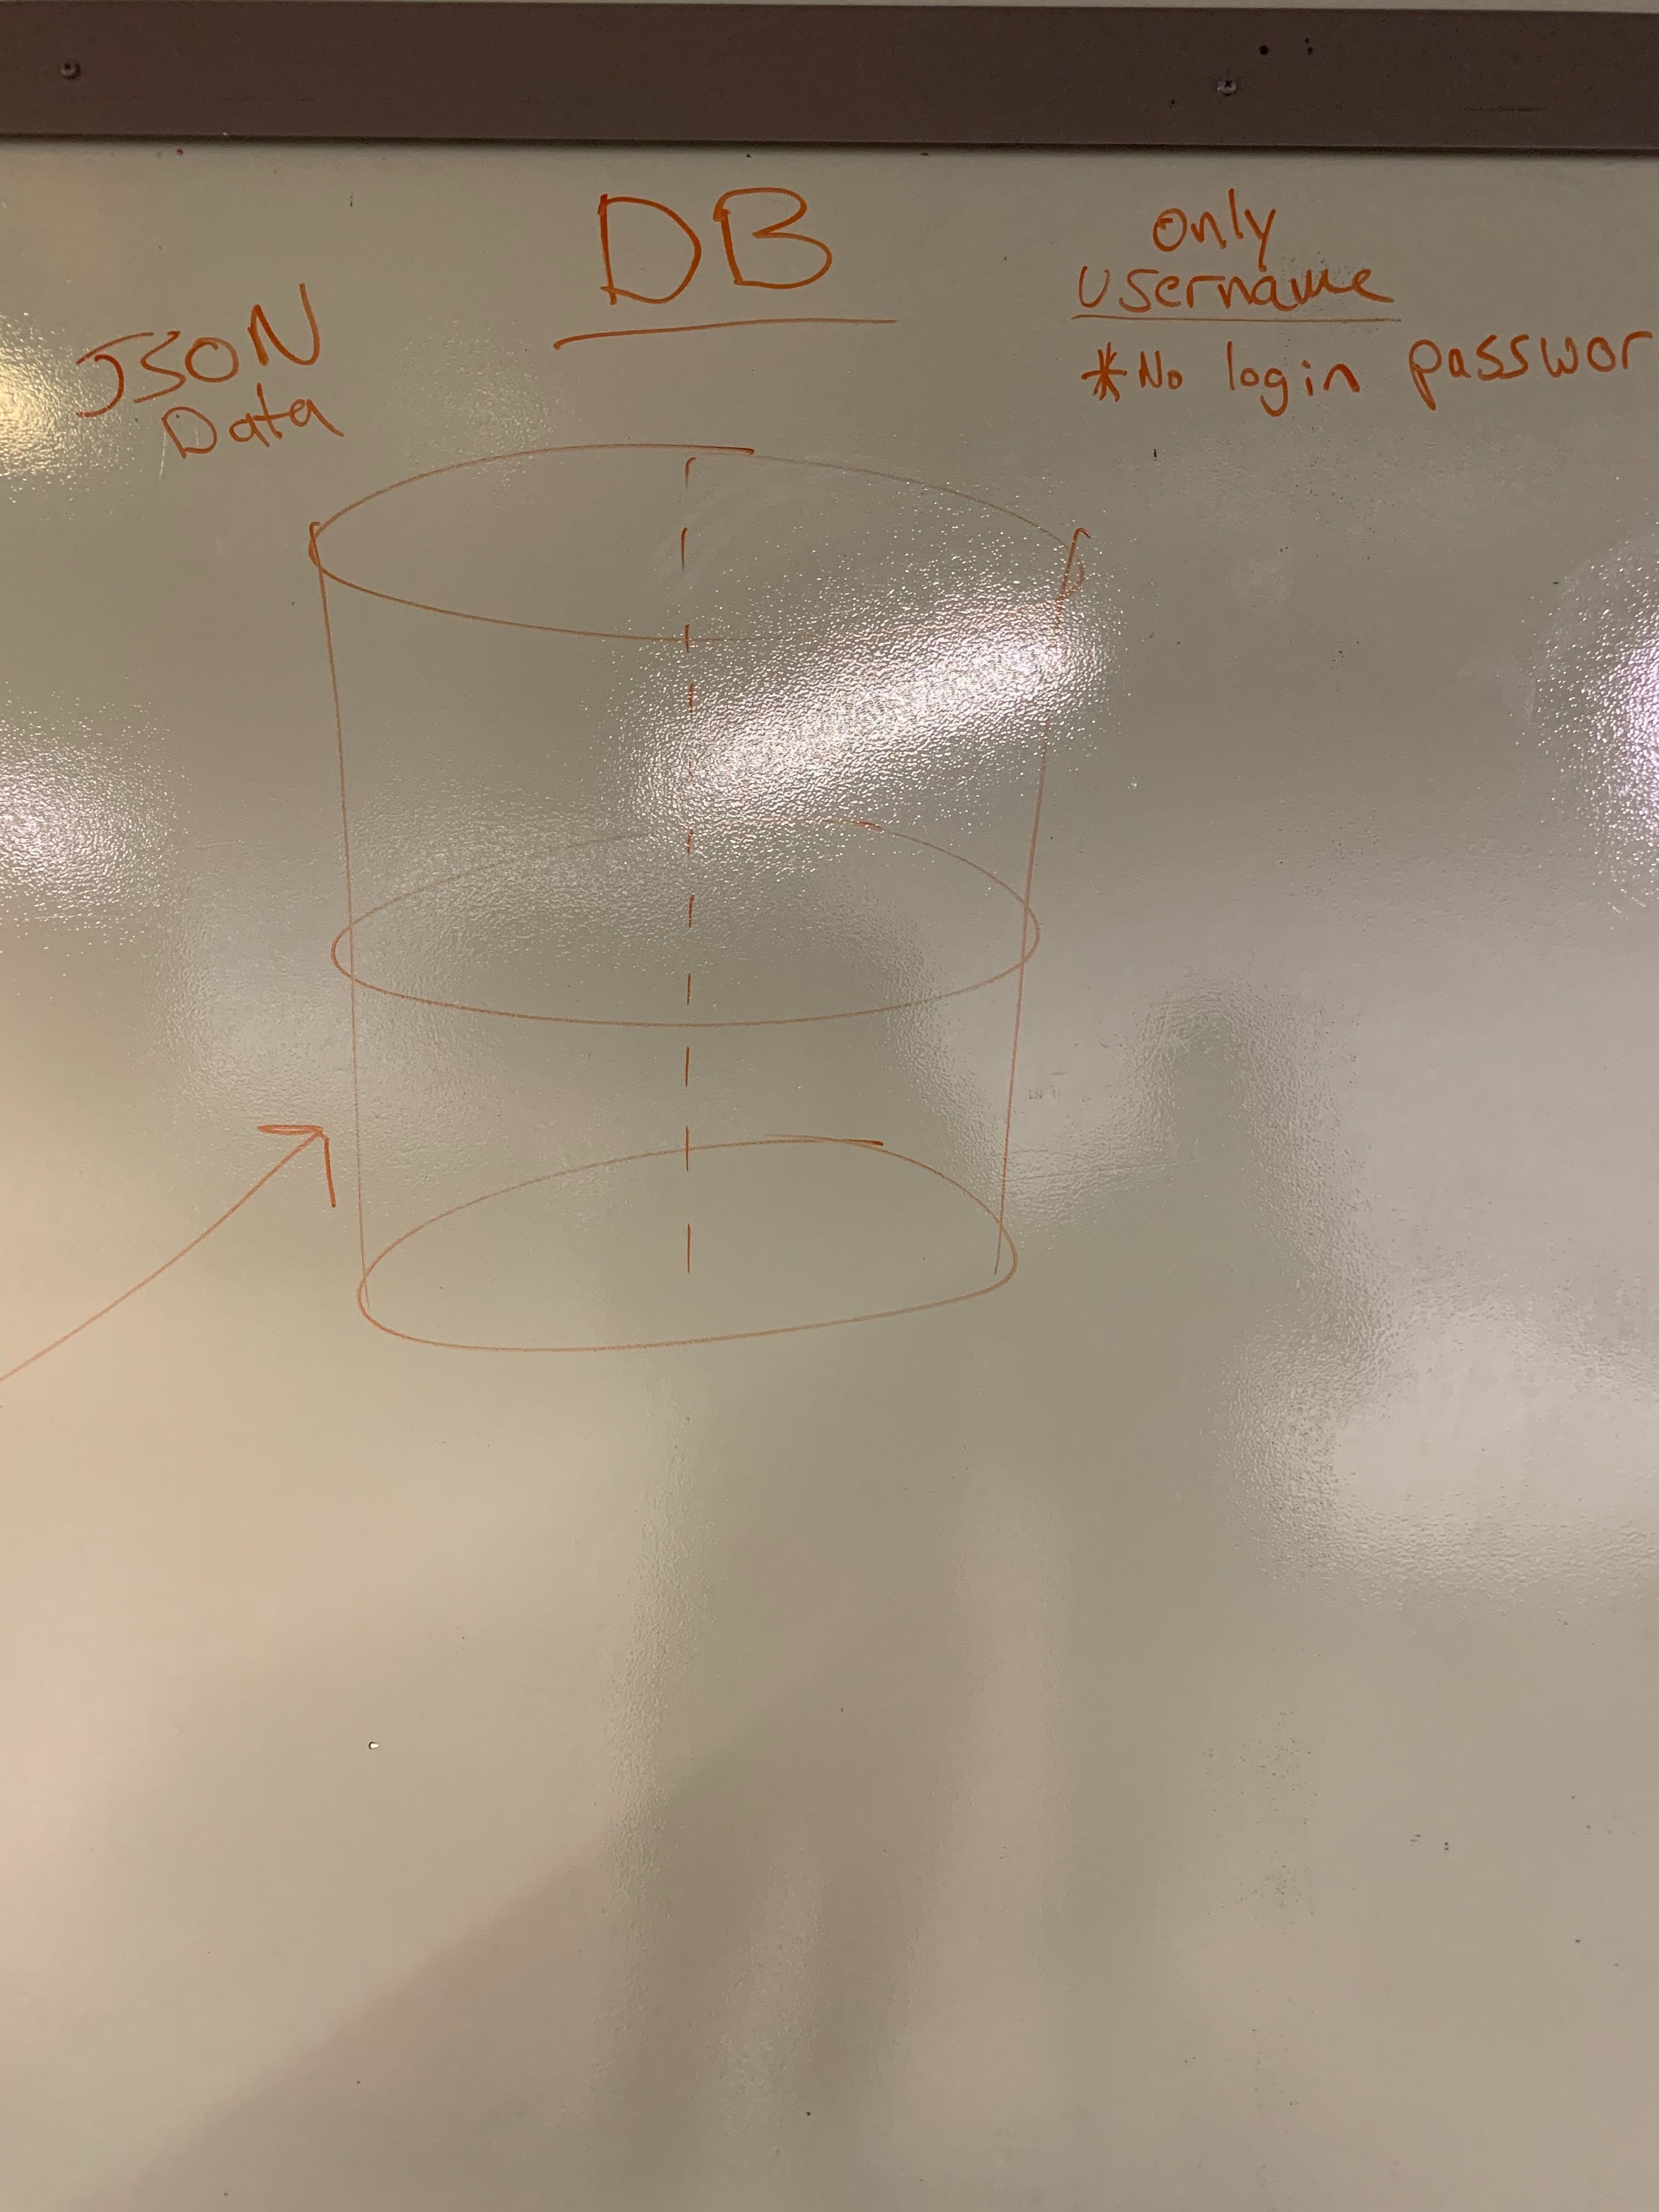 DB
JSON
Data
only
username
*No login passwor